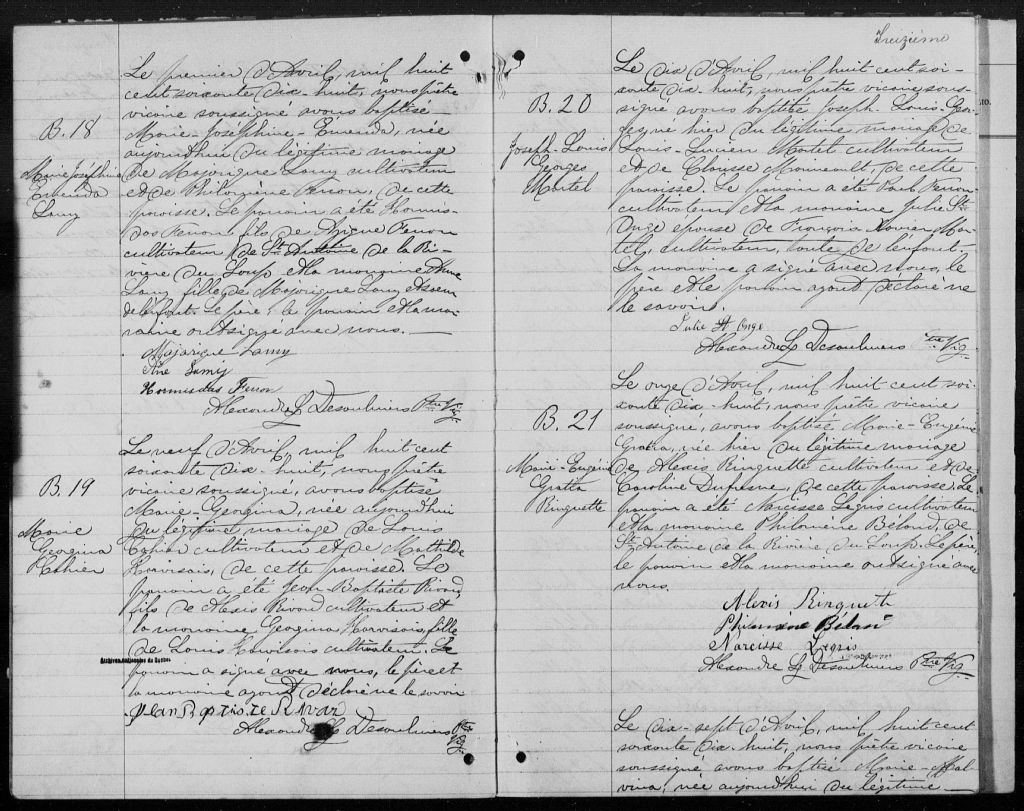 B. 18
Marie Joséphine
Emenda
Lamy
Le premier d'Avril, mil huit
cent soixante dix-huit, nous prêtre
vicaire soussigné avons baptisé
Marie-Joséphine-Emenda, née
aujourdhui du légitime mariage
de Majorique Lamy cultivateur
et de Philomène Penon, de cette
paroisse. Le parrain a été Hormis-
das Penon fils de Pierre Penon
cultivateur de St. Antoine de la Ri-
vière du Loup et la marraine Anne
Lamy fille de Majorique Lamy et soeur
de l'enfant. Le père, le parrain et la mar-
raine ont signé avec nous.
Majorique Lamy
Ane Lamy
Hormisdas
Alexandre L. Desaulniers Ptre Vic.
B. 19
Marie
Georgina
Cahier
Le neuf d'Avril, mil huit cent
soixante dix-huit, nous prêtre
vicaire soussigné, avons baptisé
Marie-Georgina, née aujourdhui
du légitime mariage de Louis
Cahier cultivateur et de Mathilde
Harvisais, de cette paroisse. Le
parrain a été Jean-Baptiste Rivard
fils de Alexis Rivard cultivateur et
la marraine Georgina Harvisais, fille
de Louis Harvisais cultivateur. Le
Archives nationales du Québec
parrain a signé avec nous, le père et
la marraine ayant déclaré ne le savoir
Jean Baptiste Rivar
Alexandre L. Desaulniers Ptre Vic.
Treizième
B. 20
Joseph-Louis
Georges
Martel
Le dix d'Avril, mil huit cent soi-
xante dix-huit, nous prêtre vicaire sous-
signé avons baptisé Joseph-Louis-Geor-
ges, né hier du légitime mariage de
Louis-Lucien Martel cultivateur
et de Clausse, de cette
paroisse. Le parrain a été Penon
cultivateur et la marraine Julie St.
Onge épouse de François Xavier Mar-
tel, cultivateur, tante de l'enfant.
La marraine a signé avec nous, le
père et le parrain ayant déclaré ne
le savoir.
Julie St Onge
Alexandre L. Desaulniers Ptre Vic.
B. 21
Marie-Eugénie
Gratta
Ringuette
Le onze d'Avril, mil huit cent soi-
xante dix-huit, nous prêtre vicaire
soussigné, avons baptisé Marie-Eugénie
née hier du légitime mariage
de Alexis Ringuette cultivateur et de
Caroline Dufresne, de cette paroisse. Le
parrain a été Narcisse Legris cultivateur
et la marraine Philomène Béland, de
St. Antoine de la Rivière du Loup. Le père,
le parrain et la marraine ont signé avec
nous.
Alexis Ringueth
Philomene Beland
Narcisse Legris
Alexandre L. Desaulniers Ptre Vic.
Le dix-sept d'Avril, mil huit cent
soixante dix-huit, nous prêtre vicaire
soussigné avons baptisé Marie-Mal-
vina, née aujourdhui du légitime